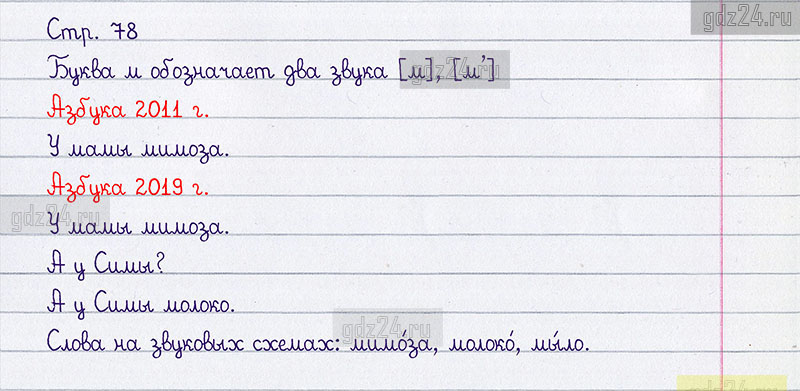 gdz24.ru
Стр. 78
Буква м обозначает два звука [м], [м']
gdz24.ru
Азбука 2011 г.
У мамы мимоза.
Азбука 2019 г.
gdz24.ru
У мамы мимоза.
А у Симы?
А у Симы молоко.
gdz24.ru
Слова на звуковых схемах: мимо́за, молоко́, мы́ло.